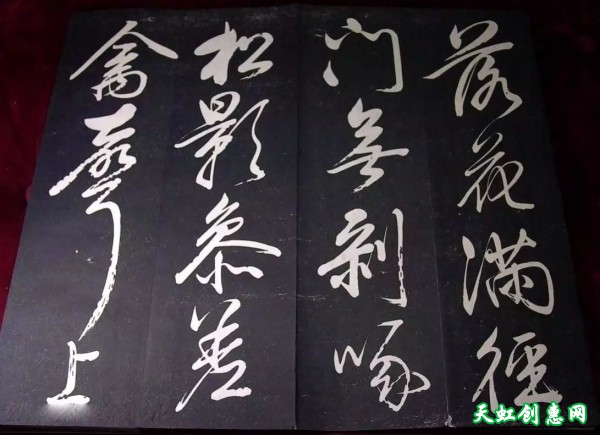 落花滿徑
門無剥啄
松影參差
禽聲上
天虹创惠网